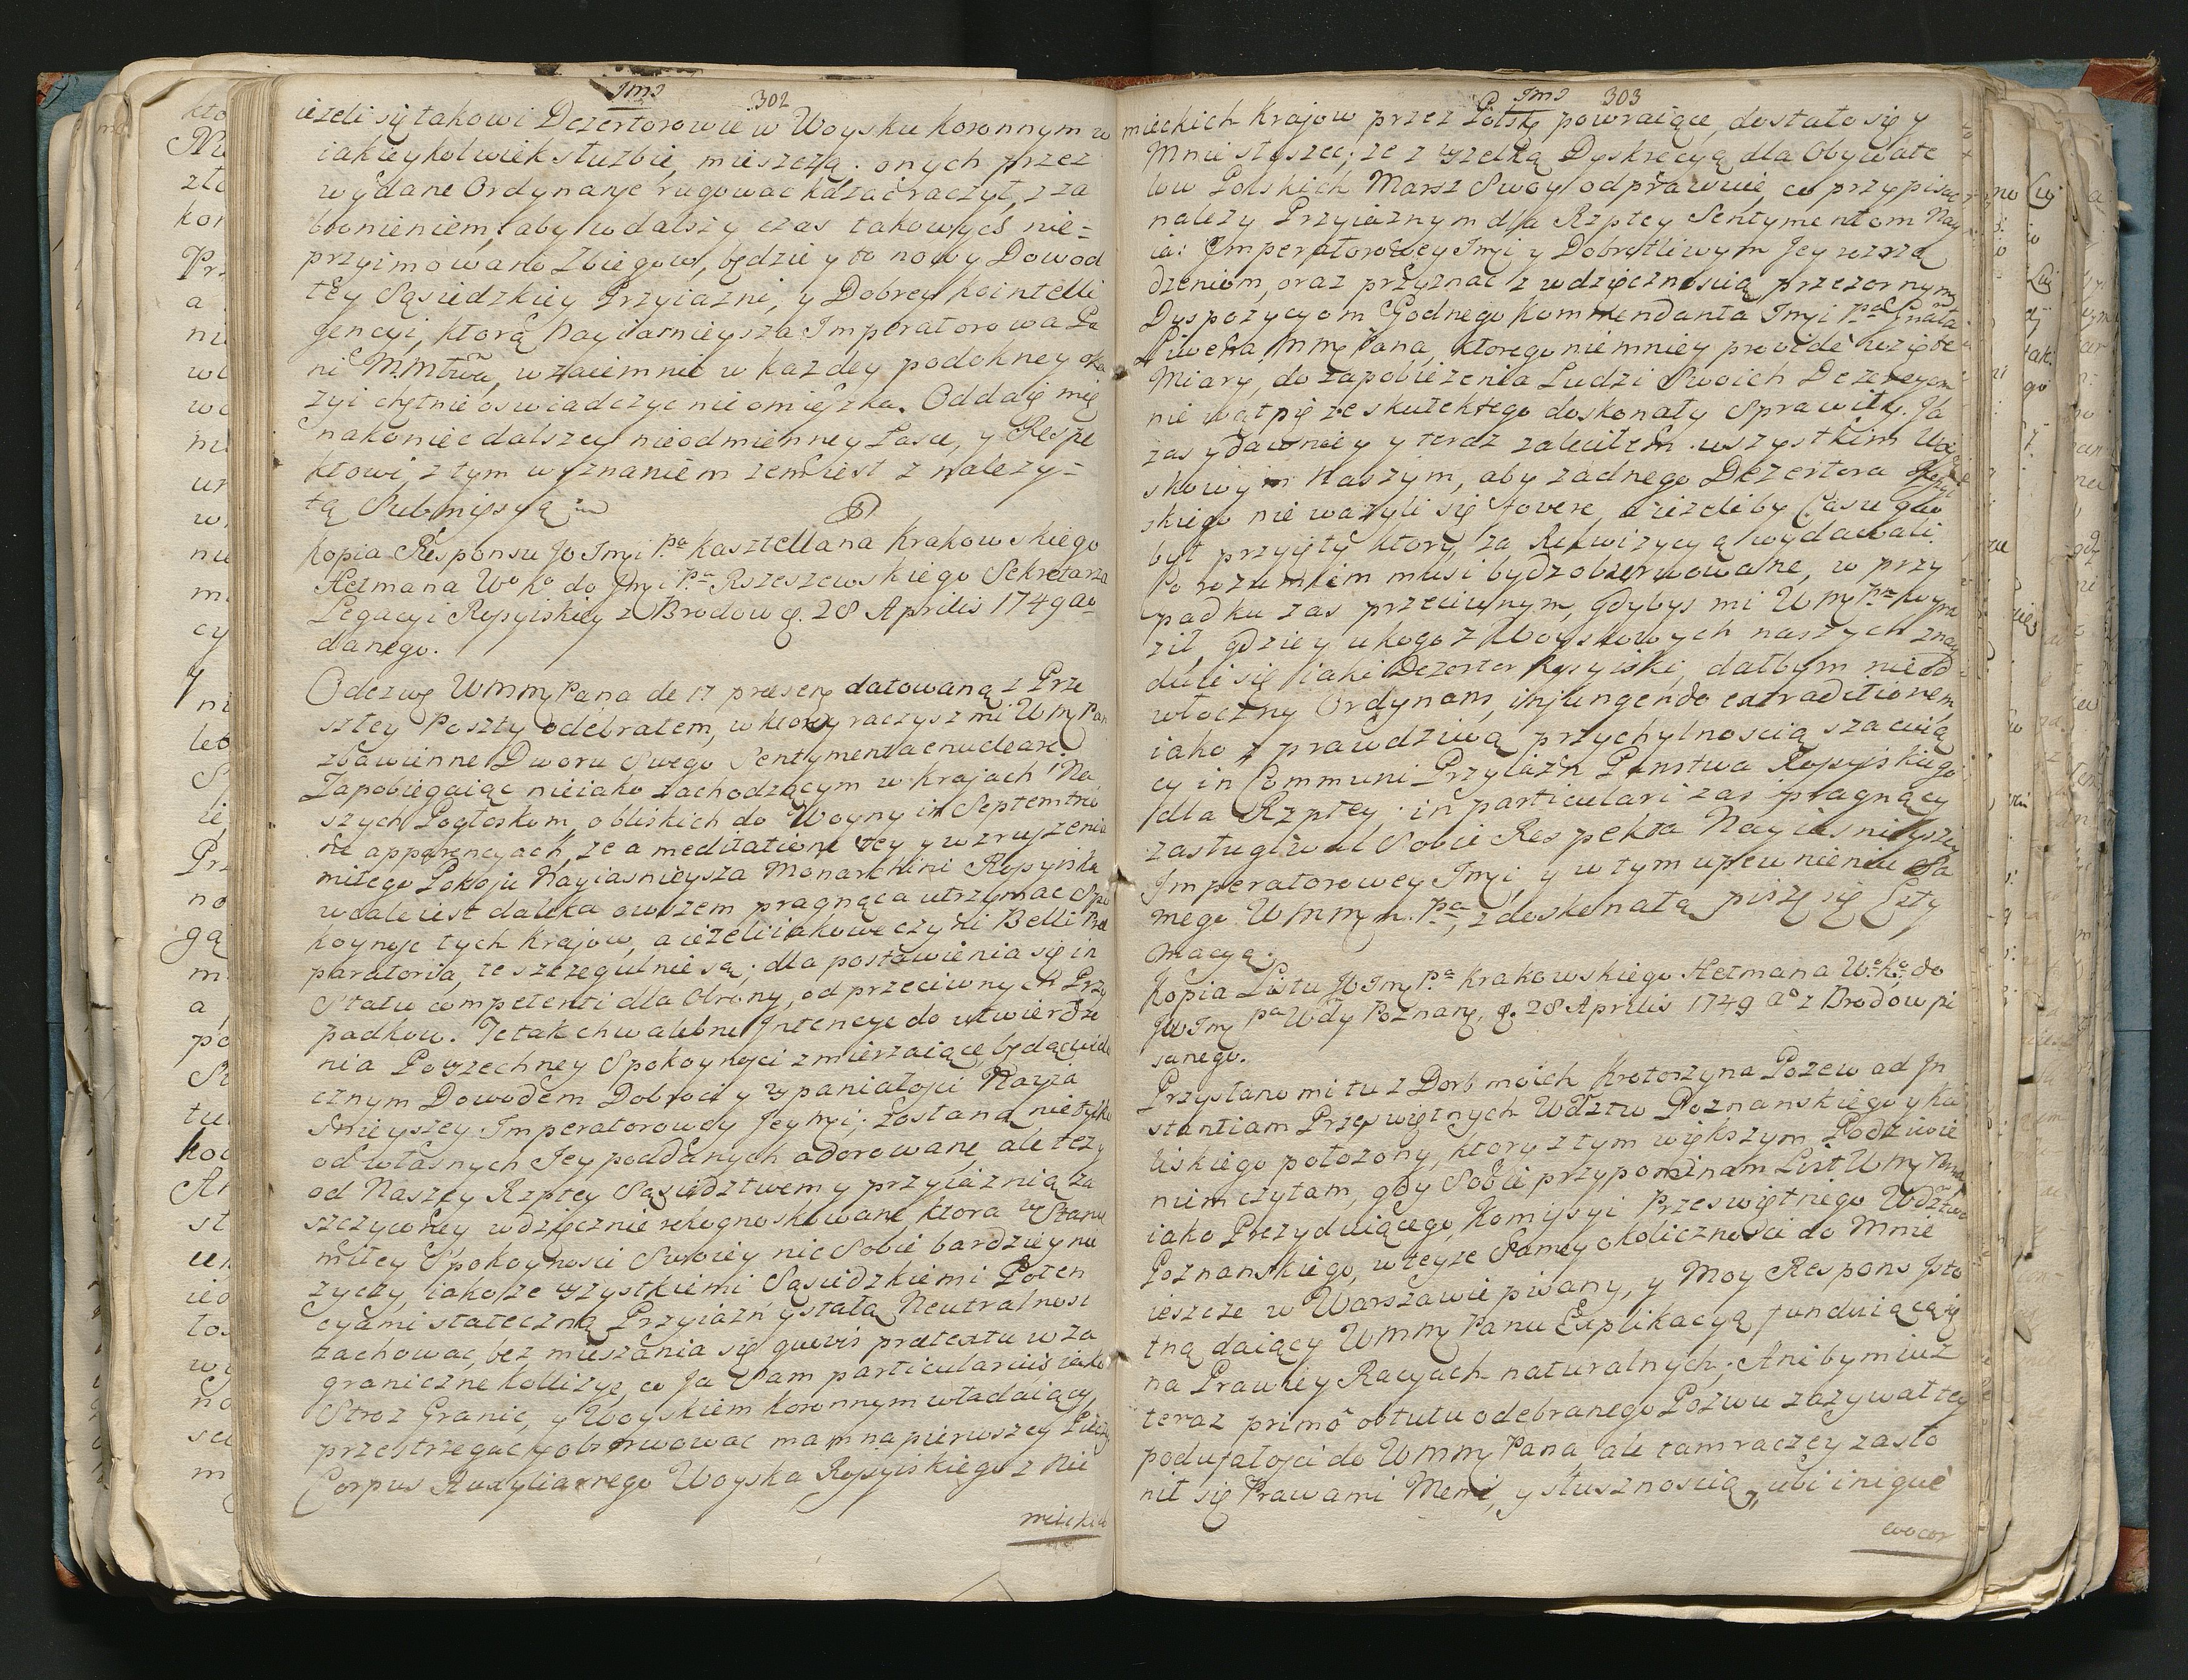 Jmo
302
ieżeli się takowi Dezertorowie w Woysku koronnym w
iakieykolwiek służbie, mieszczą: onych przez
wydane Ordynanse rugować kazać raczył, z za
bronieniem, aby w dalszy czas takowych nie=
przyimowano Zbiegow, będzie y to nowy Dowod
tey Sąsiedzkiey Przyiazni, y Dobrey kointelli
gencyi, ktorą Nayiasnieysza Imperatorowa Pa
ni Mmtwa, wzaiemnie w każdey podobney oka
zyi chętnie oswiadczyc nie omięszka. Oddaię mię
nakoniec dalszey nieodmienney Łasce, y Respe
ktowi, z tym wyznaniem zem iest z należy=
tą Submissyą
Kopia Responsu Jo Jmci Pa Kasztellana Krakowskiego
Hetmana Wo Ko do Jmci Pa Rzeszewskiego Sekretarza
Legacyi Rossyiskiey z Brodow d. 28 Aprilis 1749 ao
danego.
Odezwę WmmPana de 17 praesentis datowaną z Prze
szłey Poszty odebrałem, w ktorey raczysz mi WmPan
zbawienne Dworu Swego Sentymenta enucleare.
Zapobiegaiąc nieiako zachodzącym w krajach Na
szych Pogłoskom, o bliskich do Woyny in Septemtrio
ne apparencyach, że a meditatione tey y wzruszenia
miłego Pokoju Nayiasnieysza Monarchini Rossyiska
wcale iest daleka owszem pragnąca utrzymac Spo
koynosc tych Krajow, a ieżeli iakowe czyni Belli Prae
paratoria, te szczegulnie są; dla postawienia się in
Statu competenti dla Obrony, od przeciwnych Przy
padkow. Te tak chwalebne Intencye do utwierdze
nia Powszechney Spokoynosci zmierzaiące, będąc wido
cznym Dowodem Dobroci y wspaniałosci Nayia
snieyszey Imperatorowey Jeymci; zostaną nie tylko
od własnych Jey poddanych adorowane, ale też y
od Naszey Rzptey Sąsiedztwem y przyiaznią za
szczyconey wdzięcznie rekognoskowane, ktora w Stanie
miłey Spokoynosci Swoiey nic Sobie bardziey nie
życzy, iako ze wszystkiemi Sąsiedzkiemi Poten
cyami stateczną Przyiazń y stałą Neutralnosc
zachować, bez mieszania się quovis praetextu w za
graniczne kollizye, co Ja Sam particularius iako
Stroz Granic, y Woyskiem koronnym władaiący,
przestrzegac y obserwowac mam na pierwszey Pieczy
Corpus Auxyliarnego Woyska Rossyiskiego z Nie
mieckich
Jmo
303
mieckich Krajow przez Polskę powracaiące, dostało się y
Mnie słyszec; że z wszelką Dyskrecyą dla Obywate
low Polskich Marsz Swoy odprawuie, co przypisac
należy Przyiaznym dla Rzptey Sentymentom Nay
ia: Imperatorowey Jmci y Dobrotliwym Jey rozrzą
dzeniom, oraz przyznac z wdzięcznoscią przezornym
Dyspozycyom Godnego Kommendanta Jmci Pa Gnała
Liwena mm Pana, ktorego niemniey provide wzięte
Miary, do zapobieżenia Ludzi Swoich Dezercyom
nie wątpię że skutek tego doskonały Sprawiły. Ja
zas y dawniey y teraz zaleciłem wszystkim Woy
skowym Naszym, aby żadnego Dezertera Rossyi
skiego nie ważyli się fovere, a ieżeliby Casu quo
był przyięty ktory, za Rekwizycyą wydawali.
Co rozumiem musi bydz obserwowane, w przy
padku zas przeciwnym, gdybys mi WmPan wyra
ził, gdzie y u kogo z Woyskowych naszych znay
duie się iaki Dezerter Rossyiski, dałbym nieod
włoczny Ordynans, injungendo extraditionem,
iako z prawdziwą przychylnoscią szacuią
cy in Communi Przyiazń Panstwa Rossyiskiego
dla Rzptey. in particulari zas pragnący
zasługiwac Sobie Respekta Nayiasnieyszey
Imperatorowey Jmci, y w tym upewnieniu Sa
mego Wmm Pa, z doskonałą piszę się Esty
macyą.
Kopia Listu Jo Jmci Pa Krakowskiego Hetmana Wo Ko do
JW Jmci Pa Wdy Poznan, d. 28 Aprilis 1749 ao z Brodow pi
sanego.
Przysłano mi tu z Dobr moich Krotoszyna Pozew ad In
stantiam Przeswiętnych Wdztw Poznanskiego y Ka
liskiego położony, ktory z tym większym Podziwie
niem czytam, gdy Sobie przypominam List WmPana
iako Prezyduiącego, Komissyi Przeswiętnego Wdztwa
Poznanskiego, w teyze Samey okolicznosci do Mnie
ieszcze w Warszawie pisany, y Moy Respons Isto
tną daiący WmmPanu Explikacyą funduiącą się
na Prawney Racyach naturalnych; Anibym iuz
teraz primo obtutu odebranego Pozwu zażywał tey
podufałosci do WmmPana, ale tam raczey zasło
nił się Prawami Memi, y słusznoscią, ubi inique
evocor